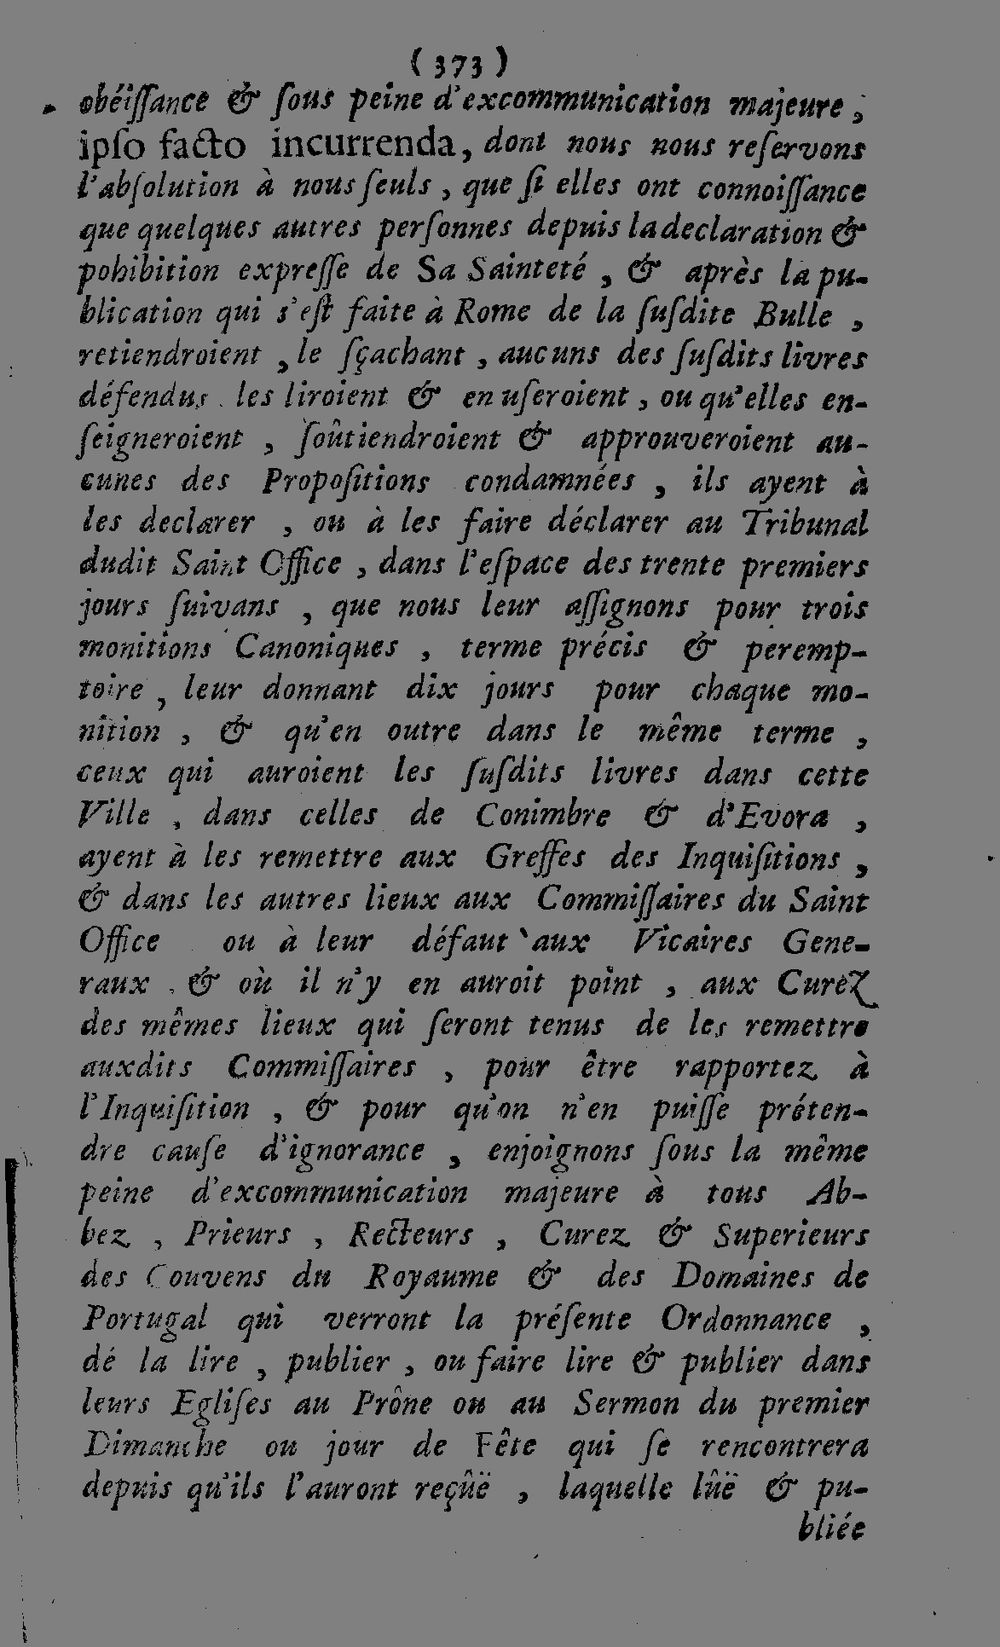 ( 373 )
obéïſſance & ſous peine d'excommunication majeure ,
ipſo facto incurrenda, dont nous nous reſervons
l'abſolution à nous ſeuls , que ſi elles ont connoiſſance
que quelques autres perſonnes depuis la declaration &
pohibition expreſſe de Sa Sainteté , & après la pu-
blication qui s'eſt faite à Rome de la ſuſdite Bulle ,
retiendroient , le ſçachant , aucuns des ſuſdits livres
défendus . les liroient & en uſeroient , ou qu'elles en-
ſeigneroient , ſoûtiendroient & approuveroient au-
cunes des Propoſitions condamnées , ils ayent à
les declarer , ou à les faire déclarer au Tribunal
dudit Saint Office , dans l'eſpace des trente premiers
jours ſuivans , que nous leur aſſignons pour trois
monitions Canoniques , terme précis & peremp-
toire , leur donnant dix jours pour chaque mo-
nition , & qu'en outre dans le même terme ,
ceux qui auroient les ſuſdits livres dans cette
Ville , dans celles de Conimbre & d'Evora ,
ayent à les remettre aux Greffes des Inquiſitions ,
& dans les autres lieux aux Commiſſaires du Saint
Office ou à leur défaut aux Vicaires Gene-
raux . & où il n'y en auroit point , aux Curez
des mêmes lieux qui ſeront tenus de les remettre
auxdits Commiſſaires , pour être rapportez à
l'Inquiſition , & pour qu'on n'en puiſſe préten-
dre cauſe d'ignorance , enjoignons ſous la même
peine d'excommunication majeure à tous Ab-
bez , Prieurs , Recteurs , Curez & Superieurs
des Couvens du Royaume & des Domaines de
Portugal qui verront la préſente Ordonnance ,
dé la lire , publier , ou faire lire & publier dans
leurs Egliſes au Prône ou au Sermon du premier
Dimanche ou jour de Fête qui ſe rencontrera
depuis qu'ils l'auront reçûë , laquelle lûë & pu-
bliée